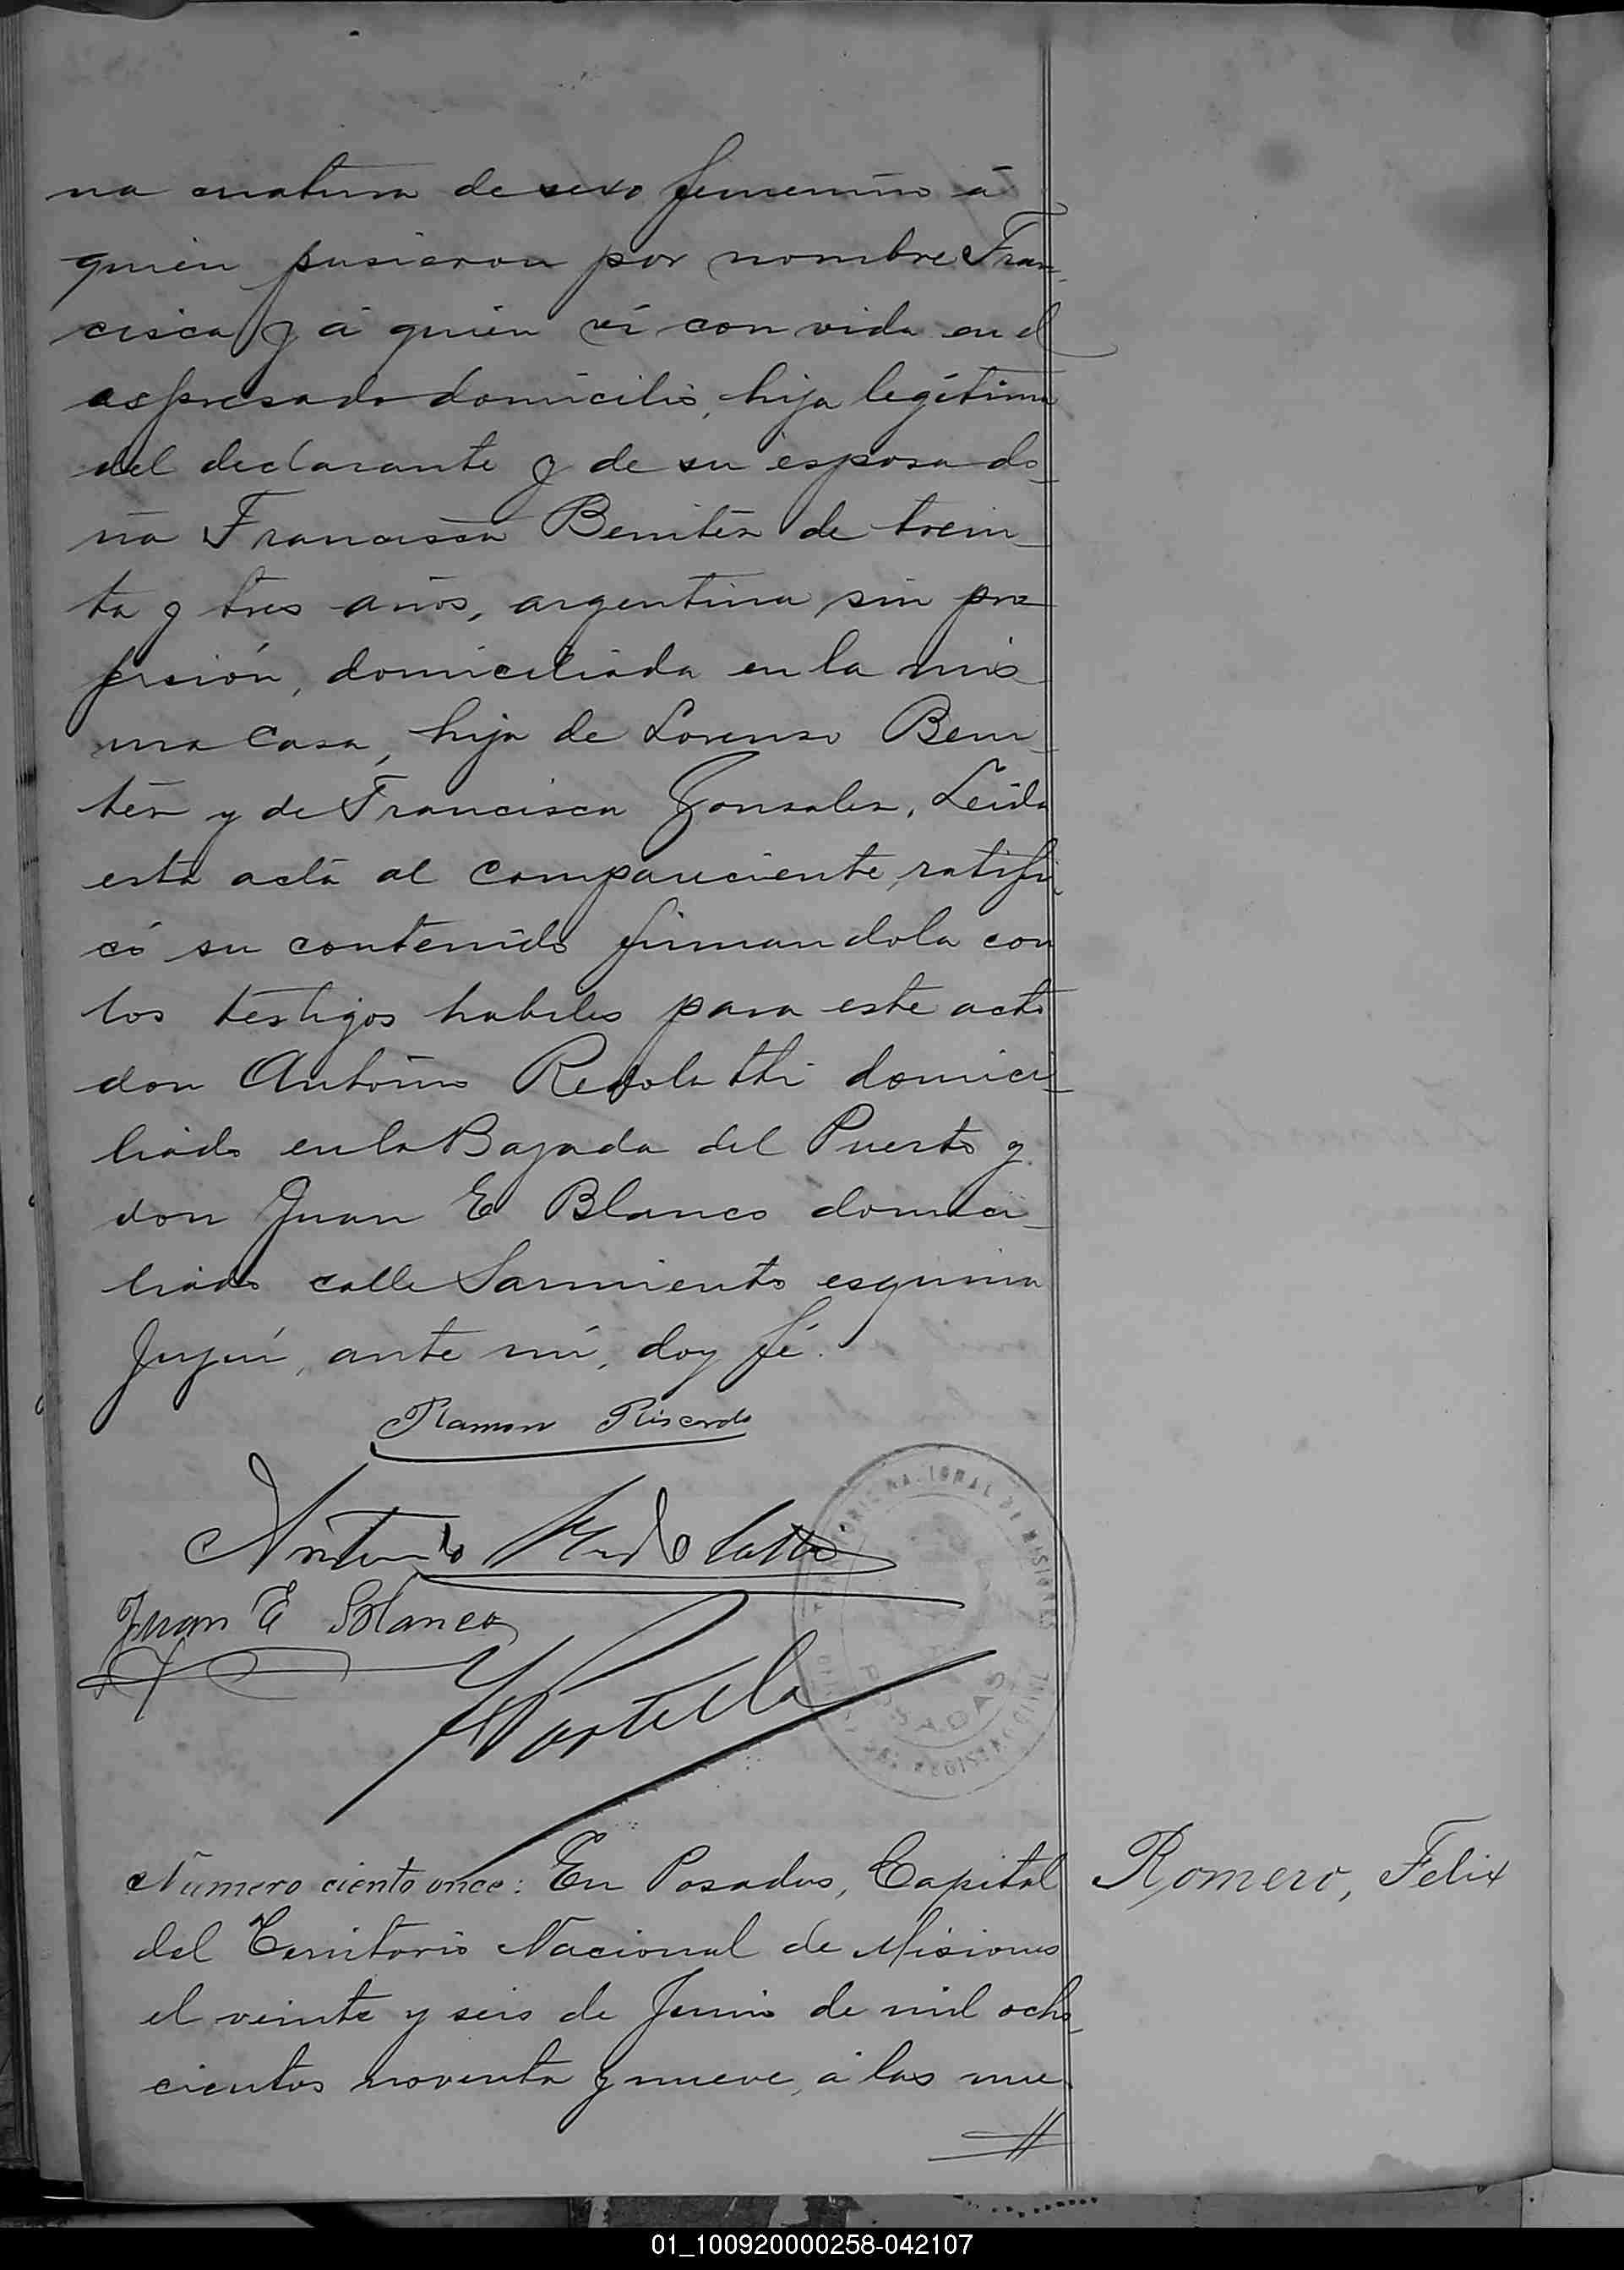 na criatura de sexo femenino á
quien pusieron por nombre Fran-
cisca y á quien ví con vida en el
espresado domicilio, hija legítima
del declarante y de su esposa do-
ña Francisca Benitez de trein-
ta y tres años, argentina sin pro
fesión, domiciliada en la mis
ma casa, hija de Lorenzo Beni-
téz y de Francisca Gonzalez. Leida
esta acta al compareciente, ratifi
có su contenido firmandola con
los testigos habiles para este acto
don Antonio Redolatti domici-
liado en la Bajada del Puerto y
don Juan E Blanco domici-
liado calle Sarmiento esquina
Jujuí, ante mí, doy fé.
Ramon Riscardo
Antonio Redolatti
Juan E Blanco
Portella
TERRITORIO NACIONAL DE MISIONES
POSADAS
DEL REGISTRO CIVIL
Número ciento once: En Posadas, Capital
del Territorio Nacional de Misiones
el veinte y seis de Junio de mil ocho-
cientos noventa y nueve, á las nue
Romero, Felix
01_100920000258-042107